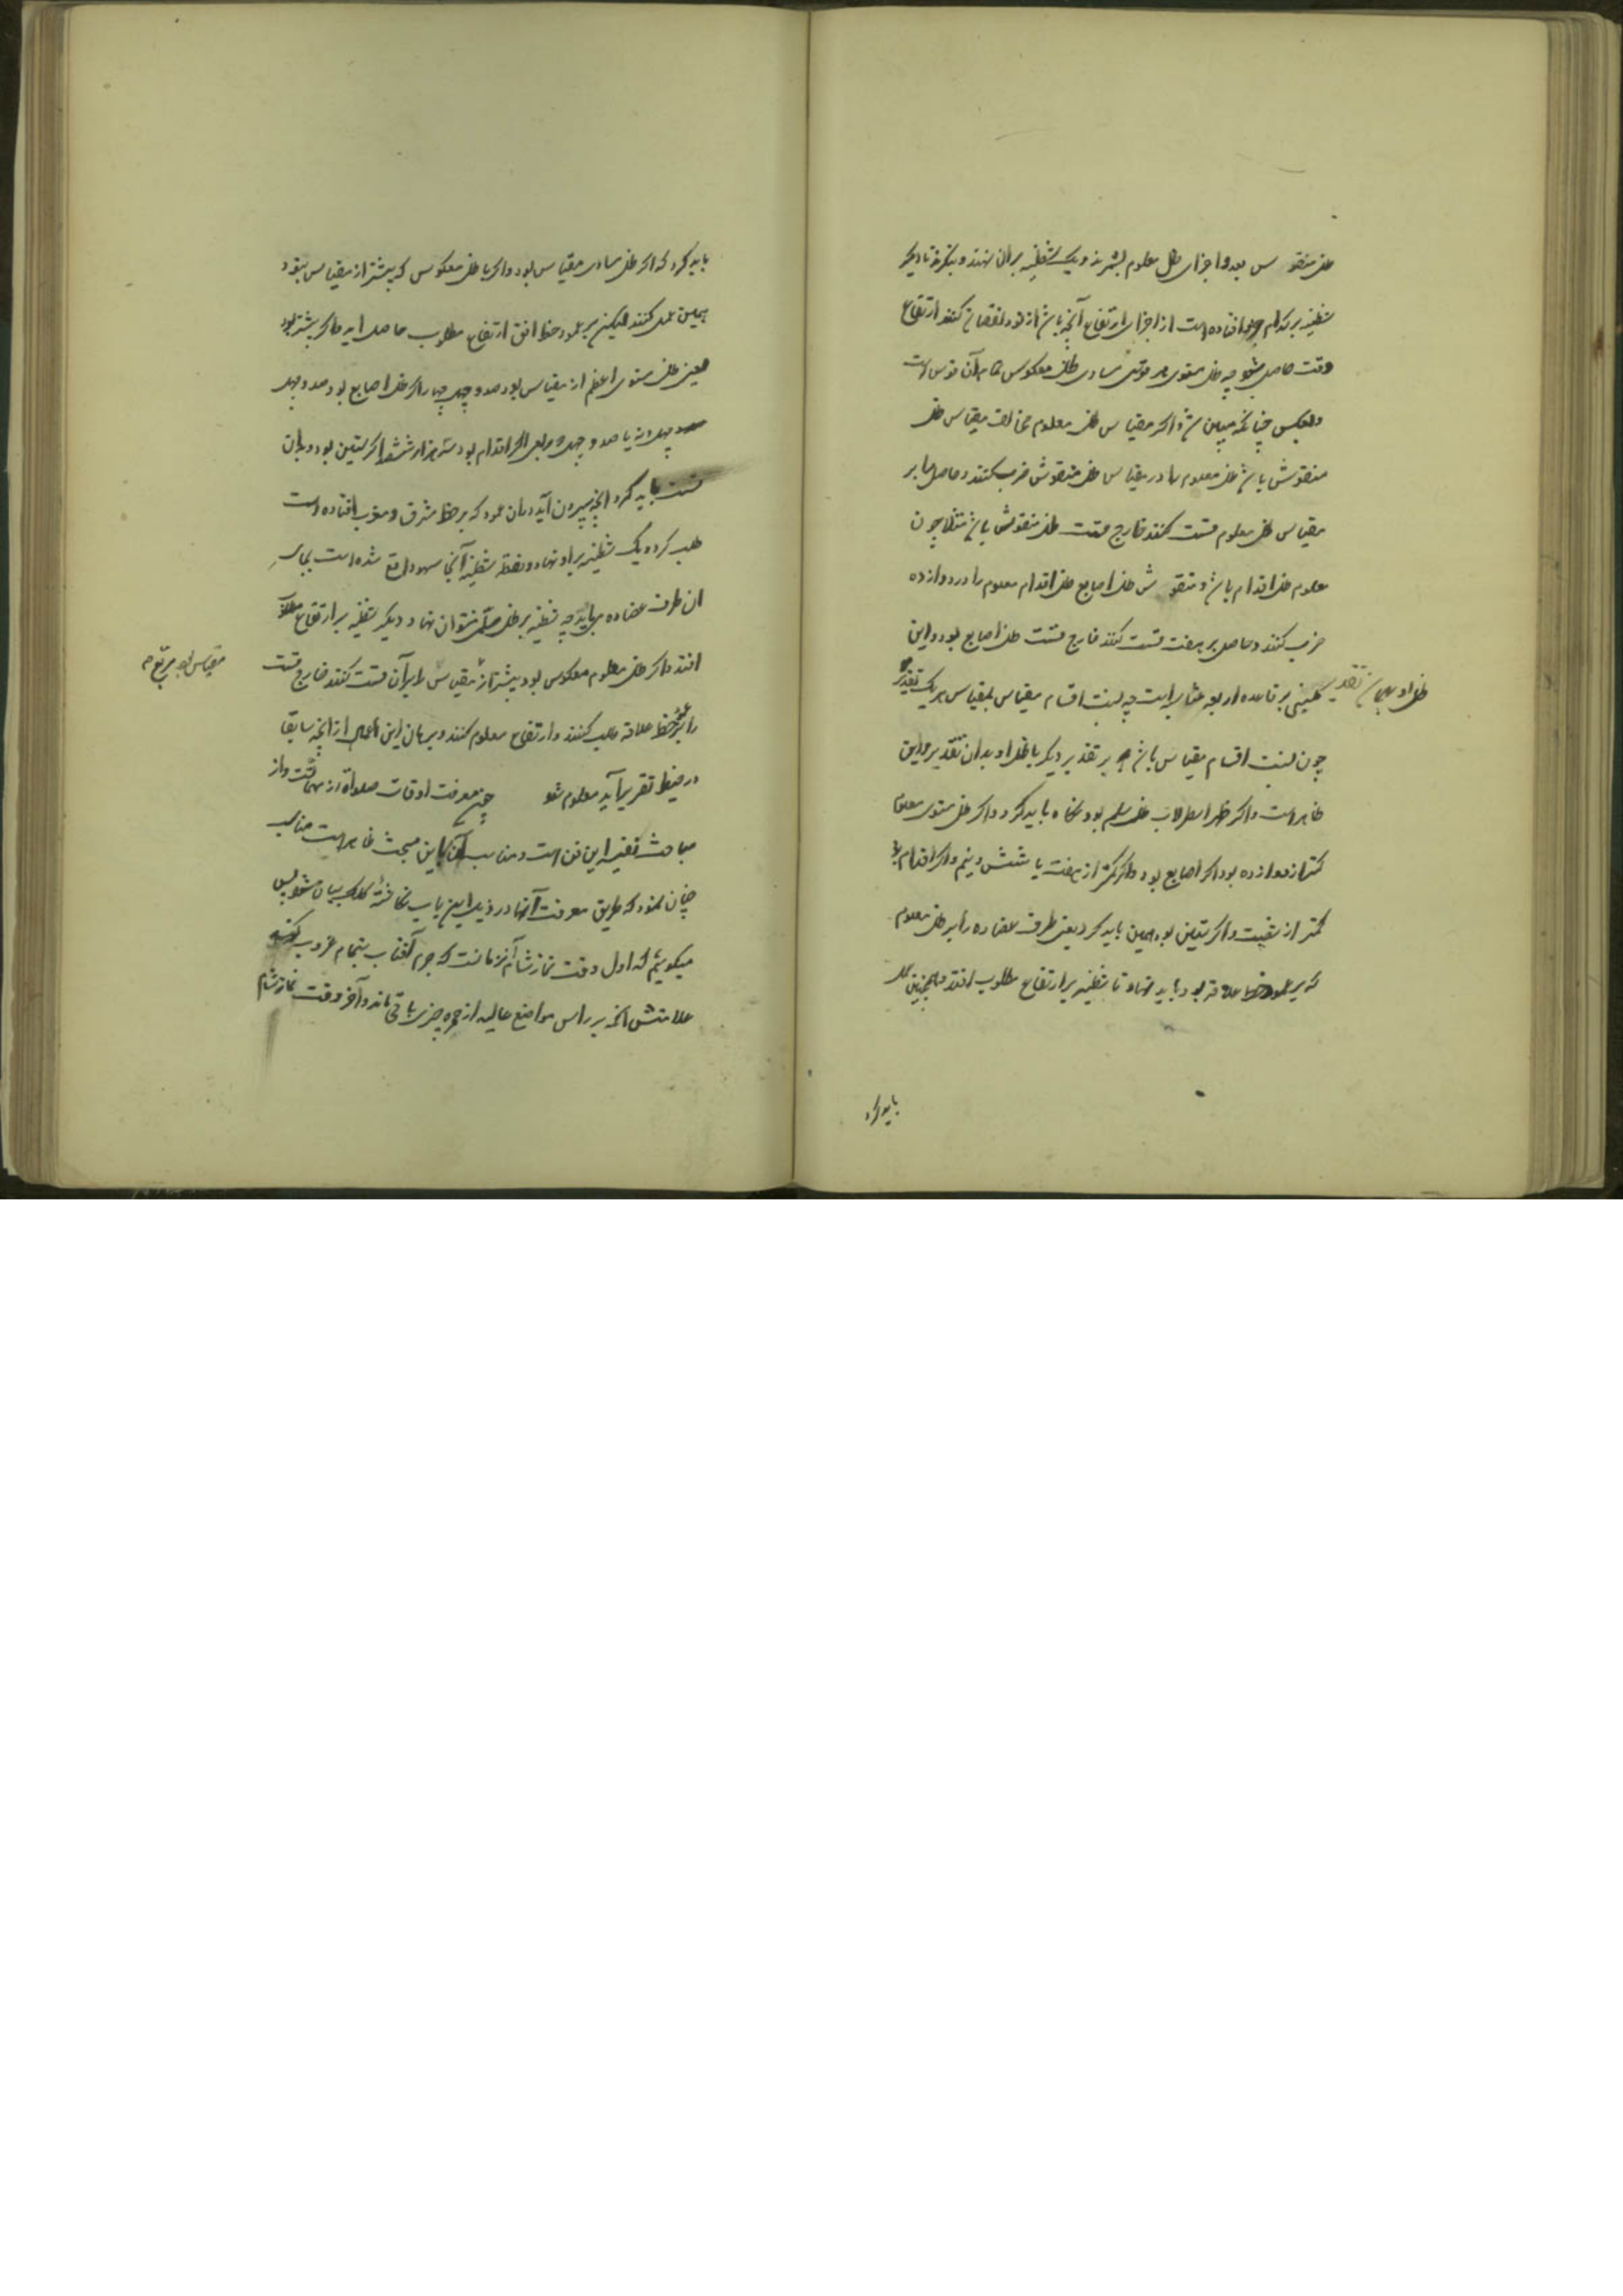 ظل منقو س بود اجزای ظل معلوم بشمرند و یک شظیه بران نهند و بنگرند تا دیگر
شظیه بر کدام جزو افتاده است از اجزای ارتفاع آنچه باشد از نود نقصان کنند ارتفاع
وقت حاصل شود چه ظل مستوی هر قوسی مساوی ظل معکوس تمام آن قوس است
و بعکس چنانکه مبین شد و اگر مقیاس ظل معلوم مخالف مقیاس ظل
منقوش باشد ظل معلوم را در مقیاس ظل منقوش ضرب کنند و حاصل را بر
مقیاس ظل معلوم قسمت کنند خارج قسمت ظل منقوش باشد مثلا چون
معلوم ظل اقدام باشد و منقو ش ظل اصابع ظل اقدام معلوم را در دوازده
ضرب کنند و حاصل بر هفت قسمت کنند خارج قسمت ظل اصابع بود و این
مبنی بر قاعده اربعه متناسبه است چه نسبت اقسام مقیاس بمقیاس هر یک تقدیر
ظل او بهمان تقدیر
چون نسبت اقسام مقیاس باشد بر تقدیر دیگر با ظل او بدان تقدیر و این
ظاهر است و اگر ظهر اسطرلاب ظل سلم بود نگاه باید کرد و اگر ظل مستوی معلوم
کمتر از دوازده بود اگر اصابع بود و اگر کمتر از هفت یا شش و نیم و اگر اقدام بود
کمتر از شصت و اگر ستین بود همین باید کرد یعنی طرف عضاده را بر ظل معلوم
که بر عمود خط علاقه بود باید نهاد تا شظیه بر ارتفاع مطلوب افتد و همچنین عمل
باید کرد
باید کرد که اگر ظل مساوی مقیاس بود و اگر با ظل معکوس که بیشتر از مقیاس نبود
همین عمل کنند لیکن بر عمود خط افق ارتفاع مطلوب حاصل اید و اگر بیشتر بود
یعنی ظل مستوی اعظم از مقیاس بود صد و چهل چهار اگر ظل اصابع بود صد و چهل
و چهل و نه یا صد و چهل و ربعی اگر اقدام بود سه هزار ششصد اگر ستین بود و بدان
قسمت باید کرد و انچه بیرون آید دران عمود که بر خط مشرق و مغرب افتاده است
طلب کرد و یک شظیه بر او نهاد و لفظ شظیه آنجا سهو واقع شده است بجای
ان طرف عضاده می باید چه شظیه بر ظل سلم نتوان نهاد و دیگر شظیه بر ارتفاع مطلوب
افتد و اگر ظل معلوم معکوس بود بیشتر از مقیاس را بر آن قسمت کنند خارج قسمت
مقیاس او مربع
را بر عمود خط علاقه طلب کنند و ارتفاع معلوم کنند و برهان این اعمال از انچه سابقا
در حیط تقریر آید معلوم شود چون معرفت اوقات صلوة از مهمات و از
مباحث نفیسه این فن است و مناسب آن باین مبحث ظاهر است مناسب
چنان نمود که طریق معرفت آنها در ذیل این باب نگاشته کلک بیان شود پس
میگوئیم که اول وقت نماز شام آن زمانست که جرم آفتاب بتمام غروب کند
علامتش انکه بر راس مواضع عالیه از حمره چیزی باقی نماند و آخر وقت نماز شام